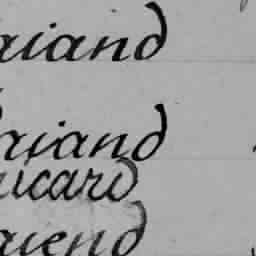 aiand
riand
uicard
aiend